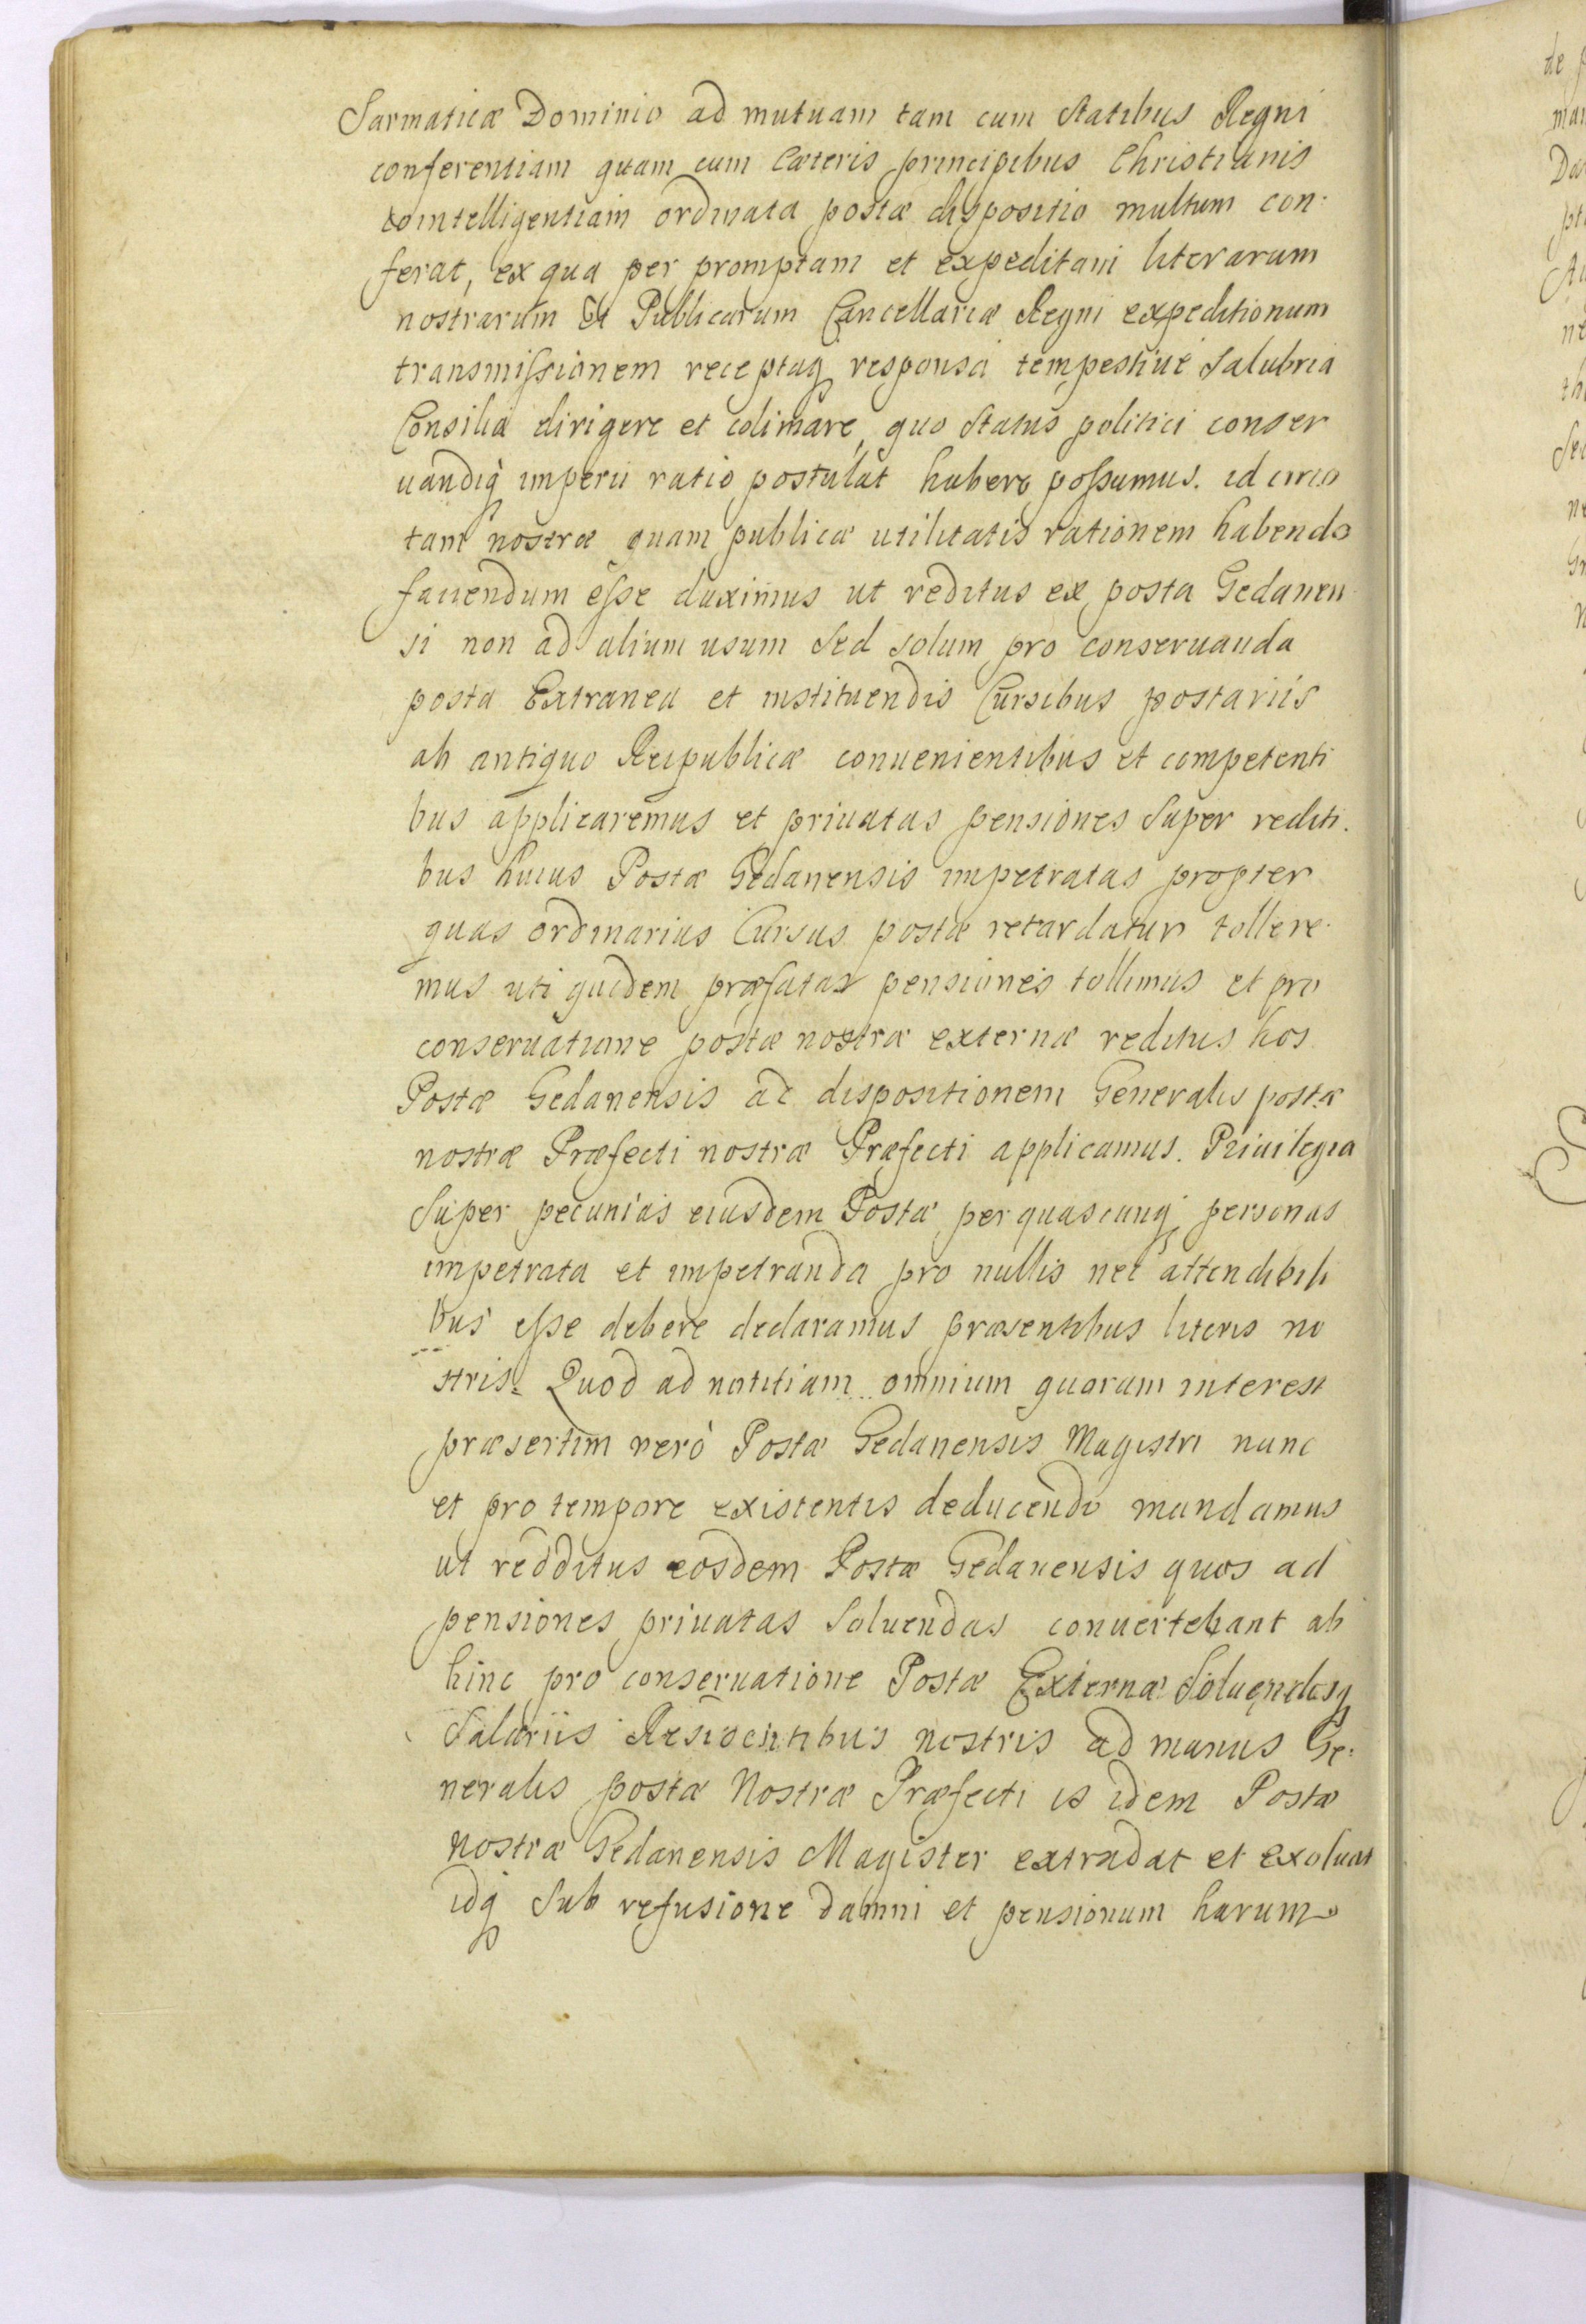 Sarmaticæ Dominio ad mutuam tam cum Statibus Regni
conferentiam quam cum Cæteris principibus Christianis
cointelligentiam ordinata postæ dispositio multum con-
ferat, ex qua per promptam et expeditam literarum
nostrarum Et Publicarum Cancellariæ Regni expeditionum
transmissionem receptaq responsa tempestiue Salubria
Consilia dirigere et colimare, quo Status politici conser
uandiq imperii ratio postulat habere possumus. id circo
tam nostræ quam publicæ utilitatis rationem habendo
fauendum esse duximus ut reditus ex posta Gedanen
si non ad alium usum Sed solum pro conseruanda
posta Extranea et instituendis Cursibus postariis
ab antiquo Reipublicæ conuenientibus et competenti
bus applicaremus et priuatas pensiones Super rediti.
bus huius Postæ Gedanensis impetratas propter
quas ordinarius Cursus postæ retardatur tollere.
mus uti quidem præfatas pensiones tollimus et pro
conseruatione postæ nostræ externæ reditus hos
Postæ Gedanensis ad dispositionem Generalis postæ
nostræ Præfecti nostræ Præfecti applicamus. Priuilegia
Super pecunias eiusdem Postæ per quascunq personas
impetrata et impetranda pro nullis nec attendibili
bus esse debere declaramus præsentibus literis no
stris. Quod ad notitiam omnium quorum interest
præsertim verò Postæ Gedanensis Magistri nunc
et pro tempore existentis deducendo mandamus
ut redditus eosdem Postæ Gedanensis quos ad
pensiones priuatas Soluendas conuertebant ab
hinc pro conseruatione Postæ Externæ Soluendisq
Salariis Residentibus nostris ad manus Ge:
neralis postæ Nostræ Præfecti is idem Postæ
nostræ Gedanensis Magister extradat et exoluat
idq Sub refusione damni et pensionum harum